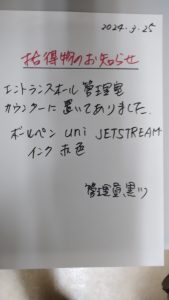 2024.3.25
拾得物のお知らせ
エントランスホール管理室
カウンターに置いてありました.
ボールペン uni JETSTREAM
インク 赤色
管理員黒ツ